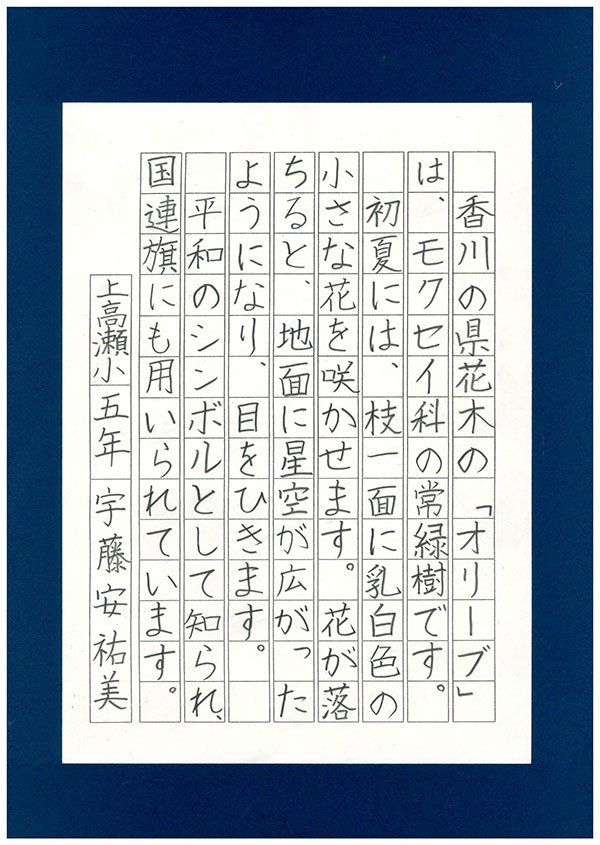 香川の県花木の「オリーブ」
は、モクセイ科の常緑樹です。
初夏には、枝一面に乳白色の
小さな花を咲かせます。花が落
ちると、地面に星空が広がった
ようになり、目をひきます。
平和のシンボルとして知られ、
国連旗にも用いられています。
上高瀬小五年 宇藤安祐美